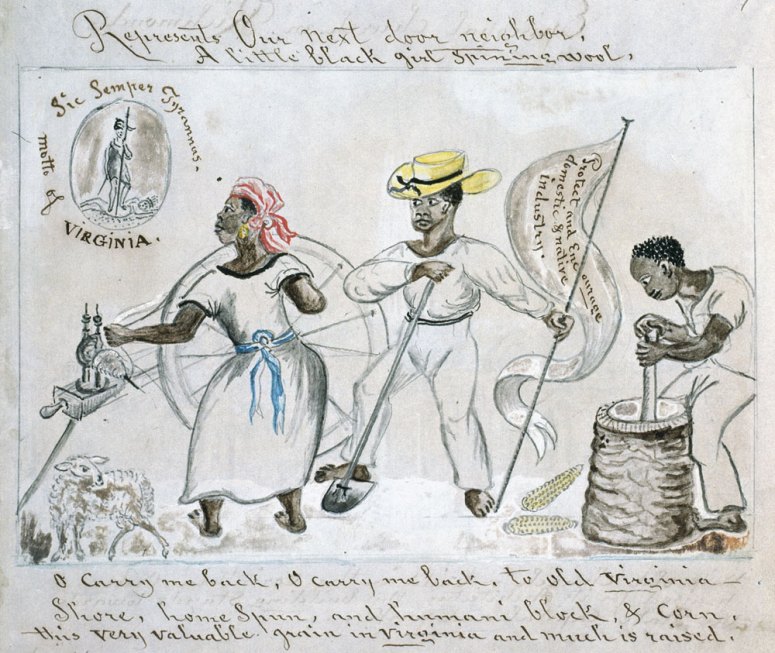 Represents Our next door neighbor,
A little black girl Spining wool.
Sic Semper Tyrannas.
motto of
VIRGINIA.
Protect and Encourage
domestic & native
Industry.
O Carry me back, O Carry me back, to old Virginia
Shore, home Spun, and humani block, & Corn,
this very valuable grain in Virginia and much is raised.